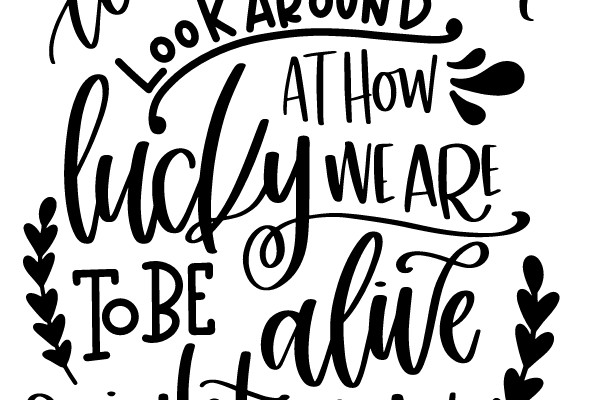 LOOK AROUND
AT HOW
lucky WE ARE
TO BE
alive